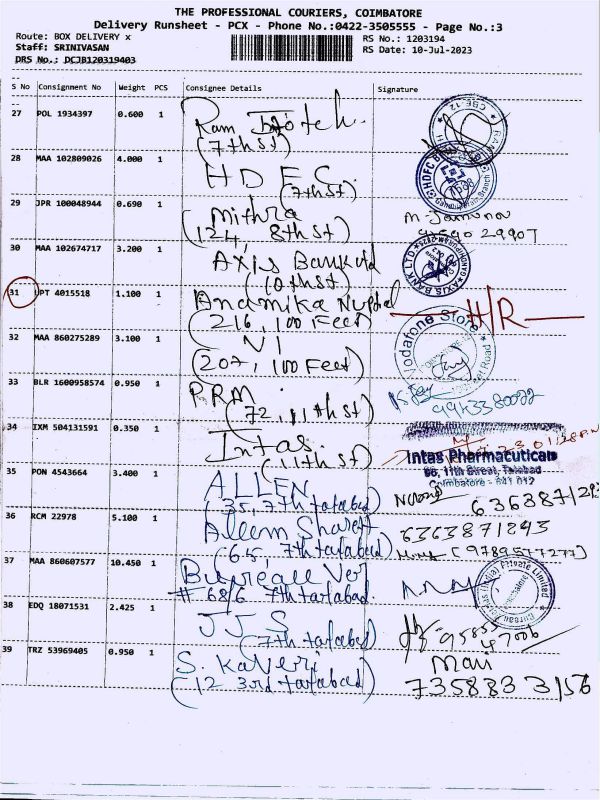 THE PROFESSIONAL COURIERS, COIMBATORE
Delivery Runsheet - PCX - Phone No.:0422-3505555 - Page No.:3
Route: BOX DELIVERY x RS No.: 1203194
Staff: SRINIVASAN RS Date: 10-Jul-2023
DRS No.: DCJB120319403
S No Consignment No Weight PCS Consignee Details Signature
27 POL 1934397 0.600 1 Ram
(7th St)
28 MAA 102809026 4.000 1 HDFC
(7th St)
29 JPR 100048944 0.690 1 Mithra
(124, 8th St)
30 MAA 102674717 3.200 1 AXIS Bank
(10th St)
31 UPT 4015518 1.100 1 Anamika H/R
(216, 100 Feet)
32 MAA 860275289 3.100 1 VI Vodafone Store
(207, 100 Feet)
33 BLR 1600958574 0.950 1 PRM
(72, 11th St)
34 IXM 504131591 0.350 1 Intas
(11th St)
Intas Pharmacutical
66, 11th Street, Tatabad
Coimbatore - 641 012
35 PON 4543664 3.400 1 ALLEN
(35, 7th tatabad)
36 RCM 22978 5.100 1 Allem 6363871293
(65, 7th tatabad)
37 MAA 860607577 10.450 1 Bureau Ver
# 68/6 7th tatabad
38 EDQ 18071531 2.425 1 JJS
(7th tatabad)
39 TRZ 53969405 0.950 1 S. Kaveri Mari
(12 3rd tatabad) 7358833156